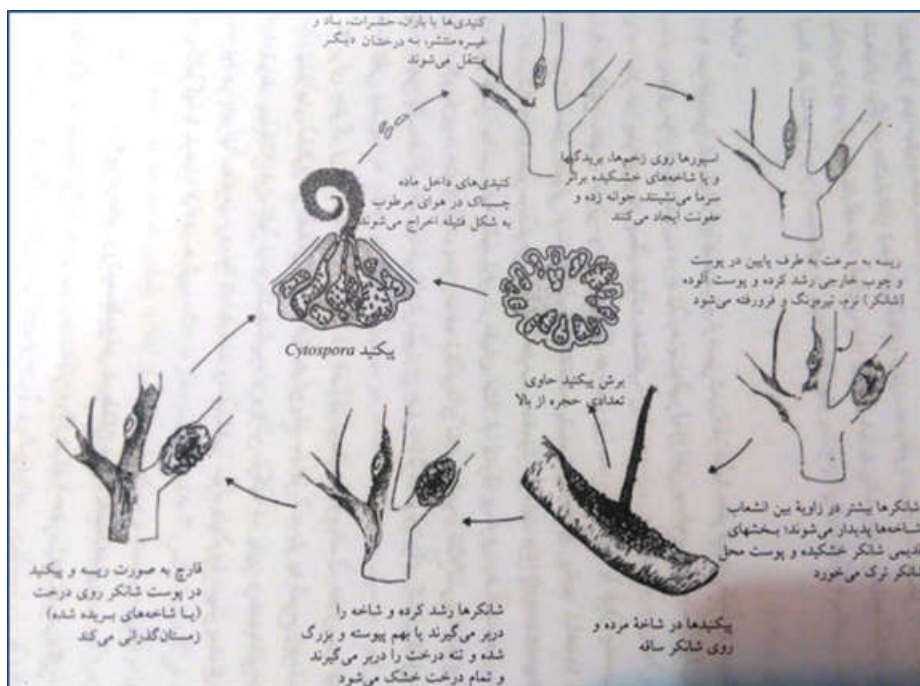 کنیدی‌ها با باران، حشرات، باد و
غیره منتشر، به درختان دیگر
منتقل می‌شوند
اسپورها روی زخم‌ها، بریدگیها
و یا شاخه‌های خشکیده براثر
سرما می‌نشینند، جوانه زده و
عفونت ایجاد می‌کنند
کنیدی‌های داخل ماده
چسبناک در هوای مرطوب
به شکل فتیله اخراج می‌شوند
ریسه به سرعت به طرف پایین در پوست
و چوب خارجی رشد کرده و پوست آلوده
(شانکر) نرم، تیره‌رنگ و فرورفته می‌شود
پیکنید Cytospora
برش پیکنید حاوی
تعدادی حجره از بالا
شانکرها بیشتر در زاویهٔ بین انشعاب
شاخه‌ها پدیدار می‌شوند؛ بخشهای
قدیمی شانکر خشکیده و پوست محل
شانکر ترک می‌خورد
پیکنیدها در شاخهٔ مرده و
روی شانکر ساقه
شانکرها رشد کرده و شاخه را
دربر می‌گیرند یا بهم پیوسته و بزرگ
شده و تنه درخت را دربر می‌گیرند
و تمام درخت خشک می‌شود
قارچ به صورت ریسه و پیکنید
در پوست شانکر روی درخت
(یا شاخه‌های بریده شده)
زمستان‌گذرانی می‌کند